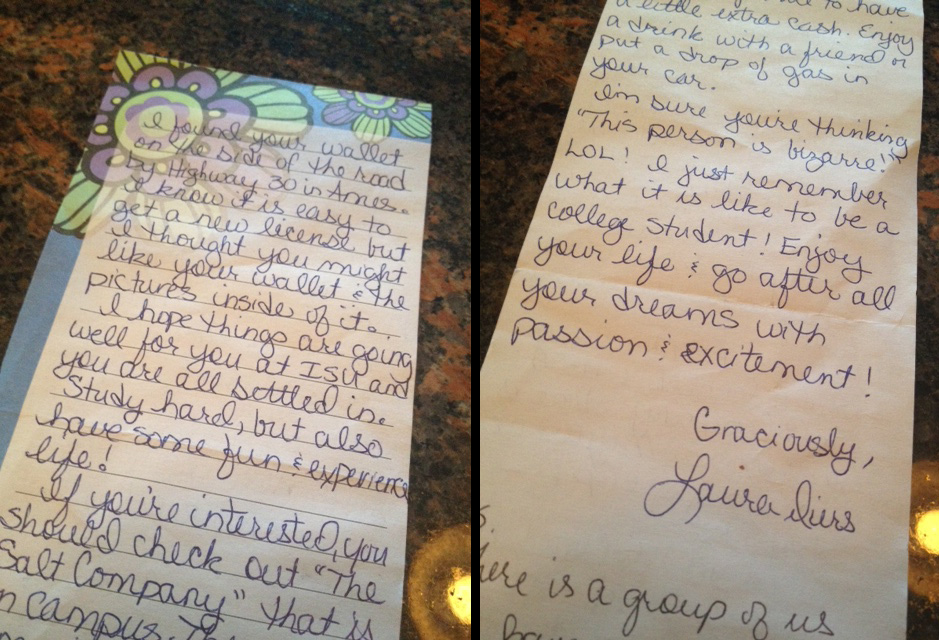 I found your wallet
on the side of the road
by Highway 30 in Ames.
I know it is easy to
get a new license but
I thought you might
like your wallet & the
pictures inside of it.
I hope things are going
well for you at ISU and
you are all settled in.
Study hard, but also
have some fun & experience
life!
If you're interested, you
should check out "The
Salt Company" that is
n campus.
to have
a little extra cash. Enjoy
a drink with a friend or
put a drop of gas in
your car.
I'm sure you're thinking
"This person is bizarre!"
LOL! I just remember
what it is like to be a
college student! Enjoy
your life & go after all
your dreams with
passion & excitement!
Graciously,
Laura
is a group of us